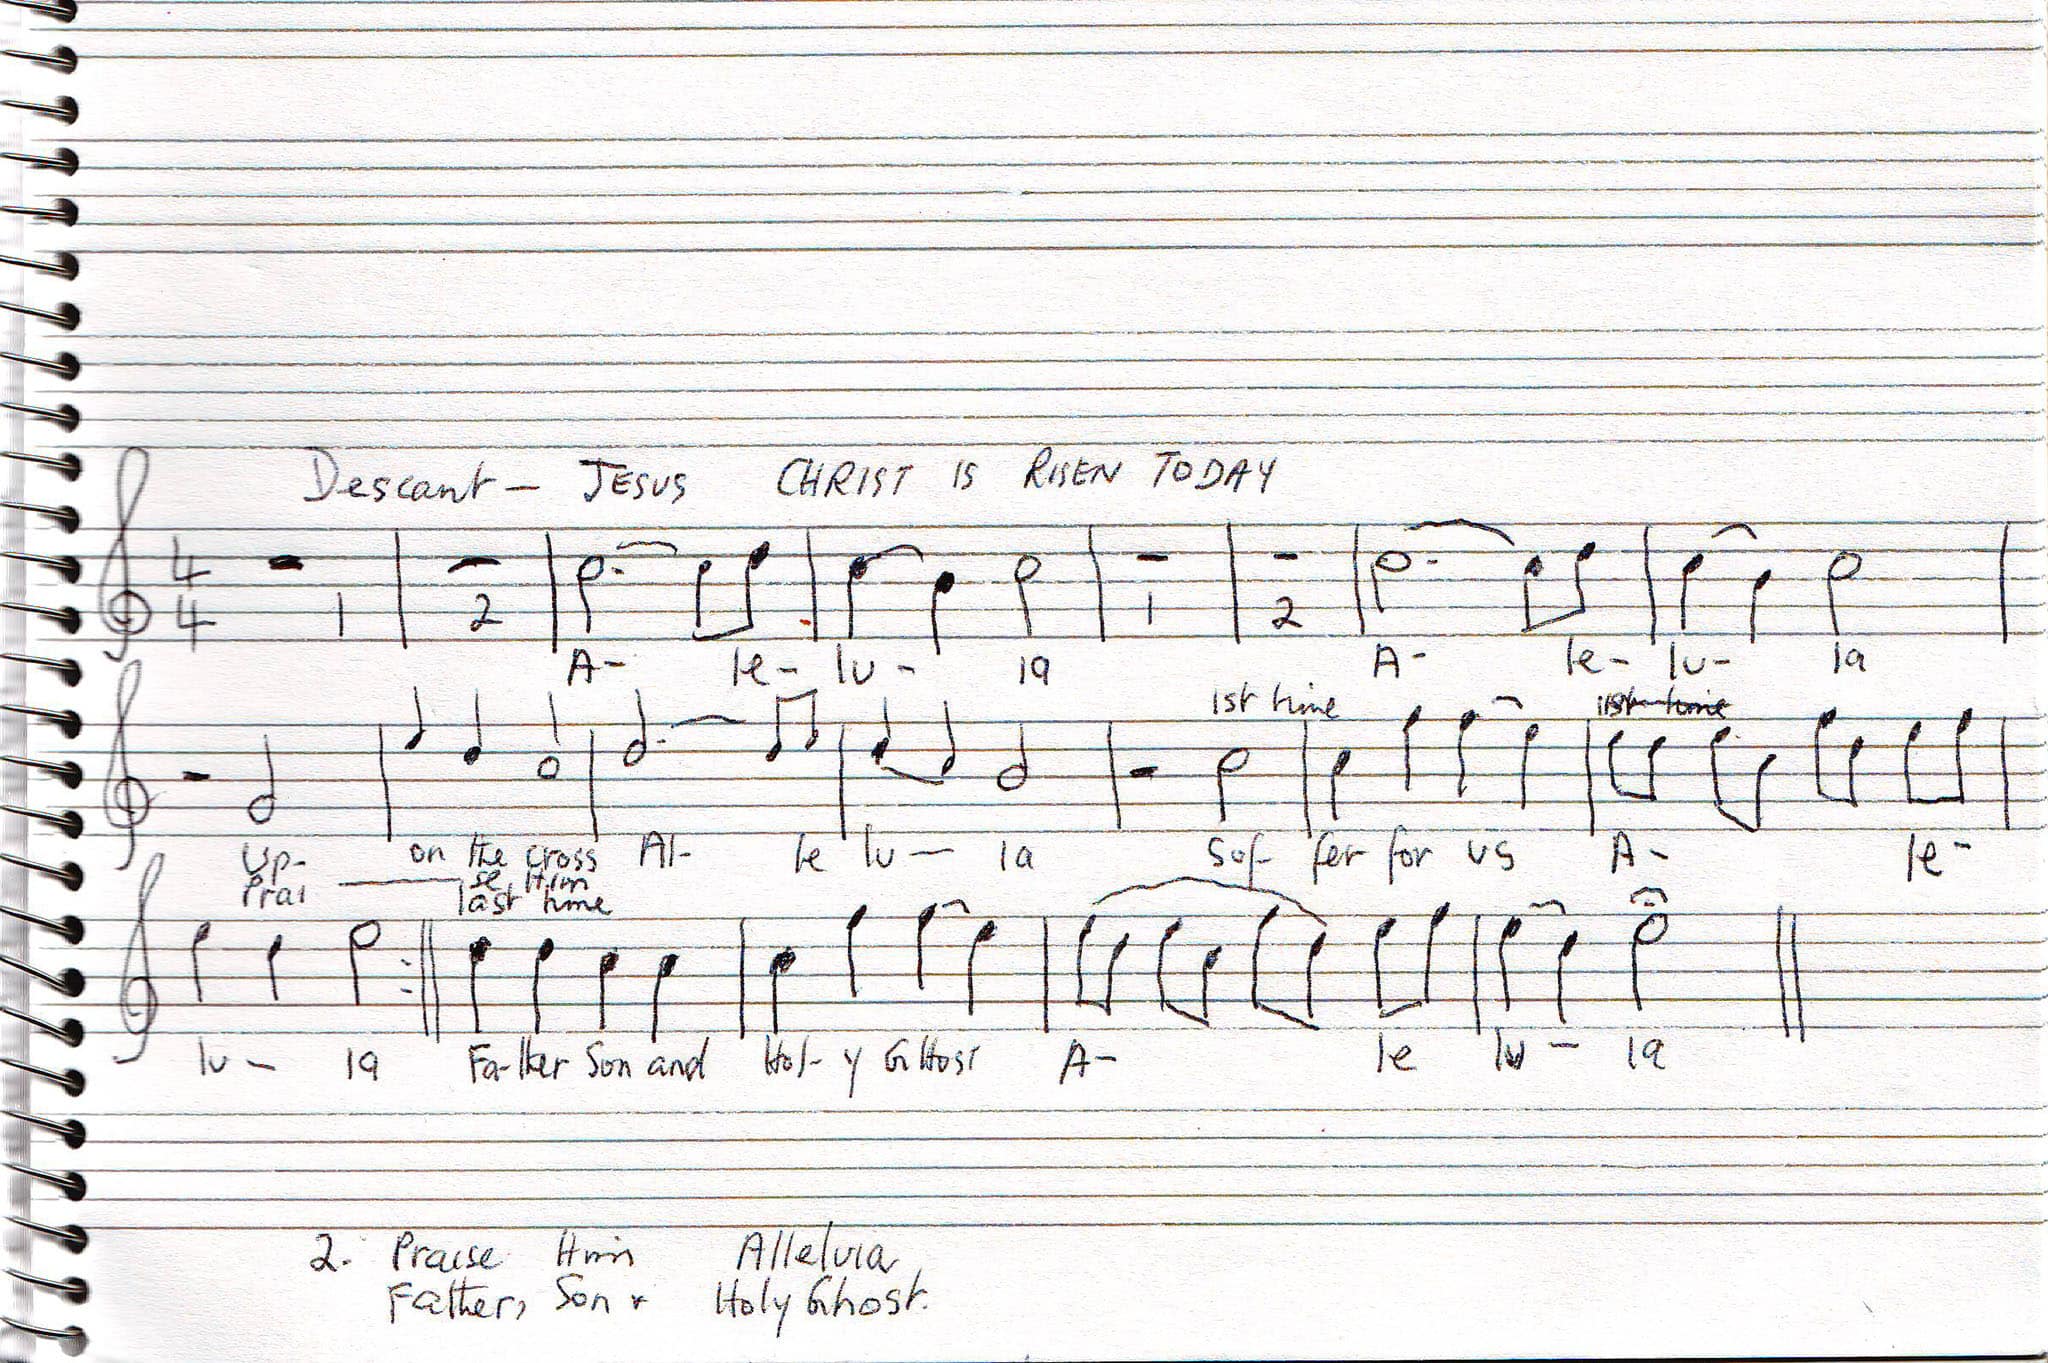 Descant - JESUS CHRIST IS RISEN TODAY
4 4 1 2 1 2
A- le- lu- ia A- le- lu- ia
1st time 1st time
Up- on the cross Al- le lu - ia Suf- fer for us A- le-
Prai se Him
last time
lu - ia Fa-ther Son and Hol- y GHost A- le lu - ia
2. Praise Him Alleluia
Father, Son + Holy Ghost.